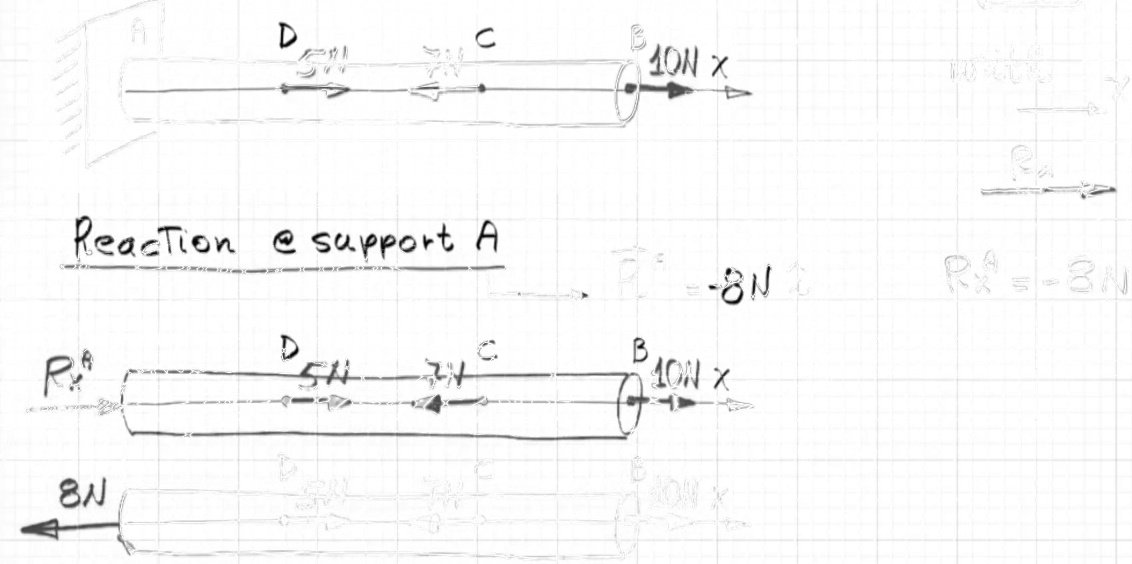 A D 5N 7N C B 10N x
with
x
Rx
Reaction @ support A
= -8N
RxA = -8N
RxA D 5N 7N C B 10N x
8N D 5N 7N C B 10N x